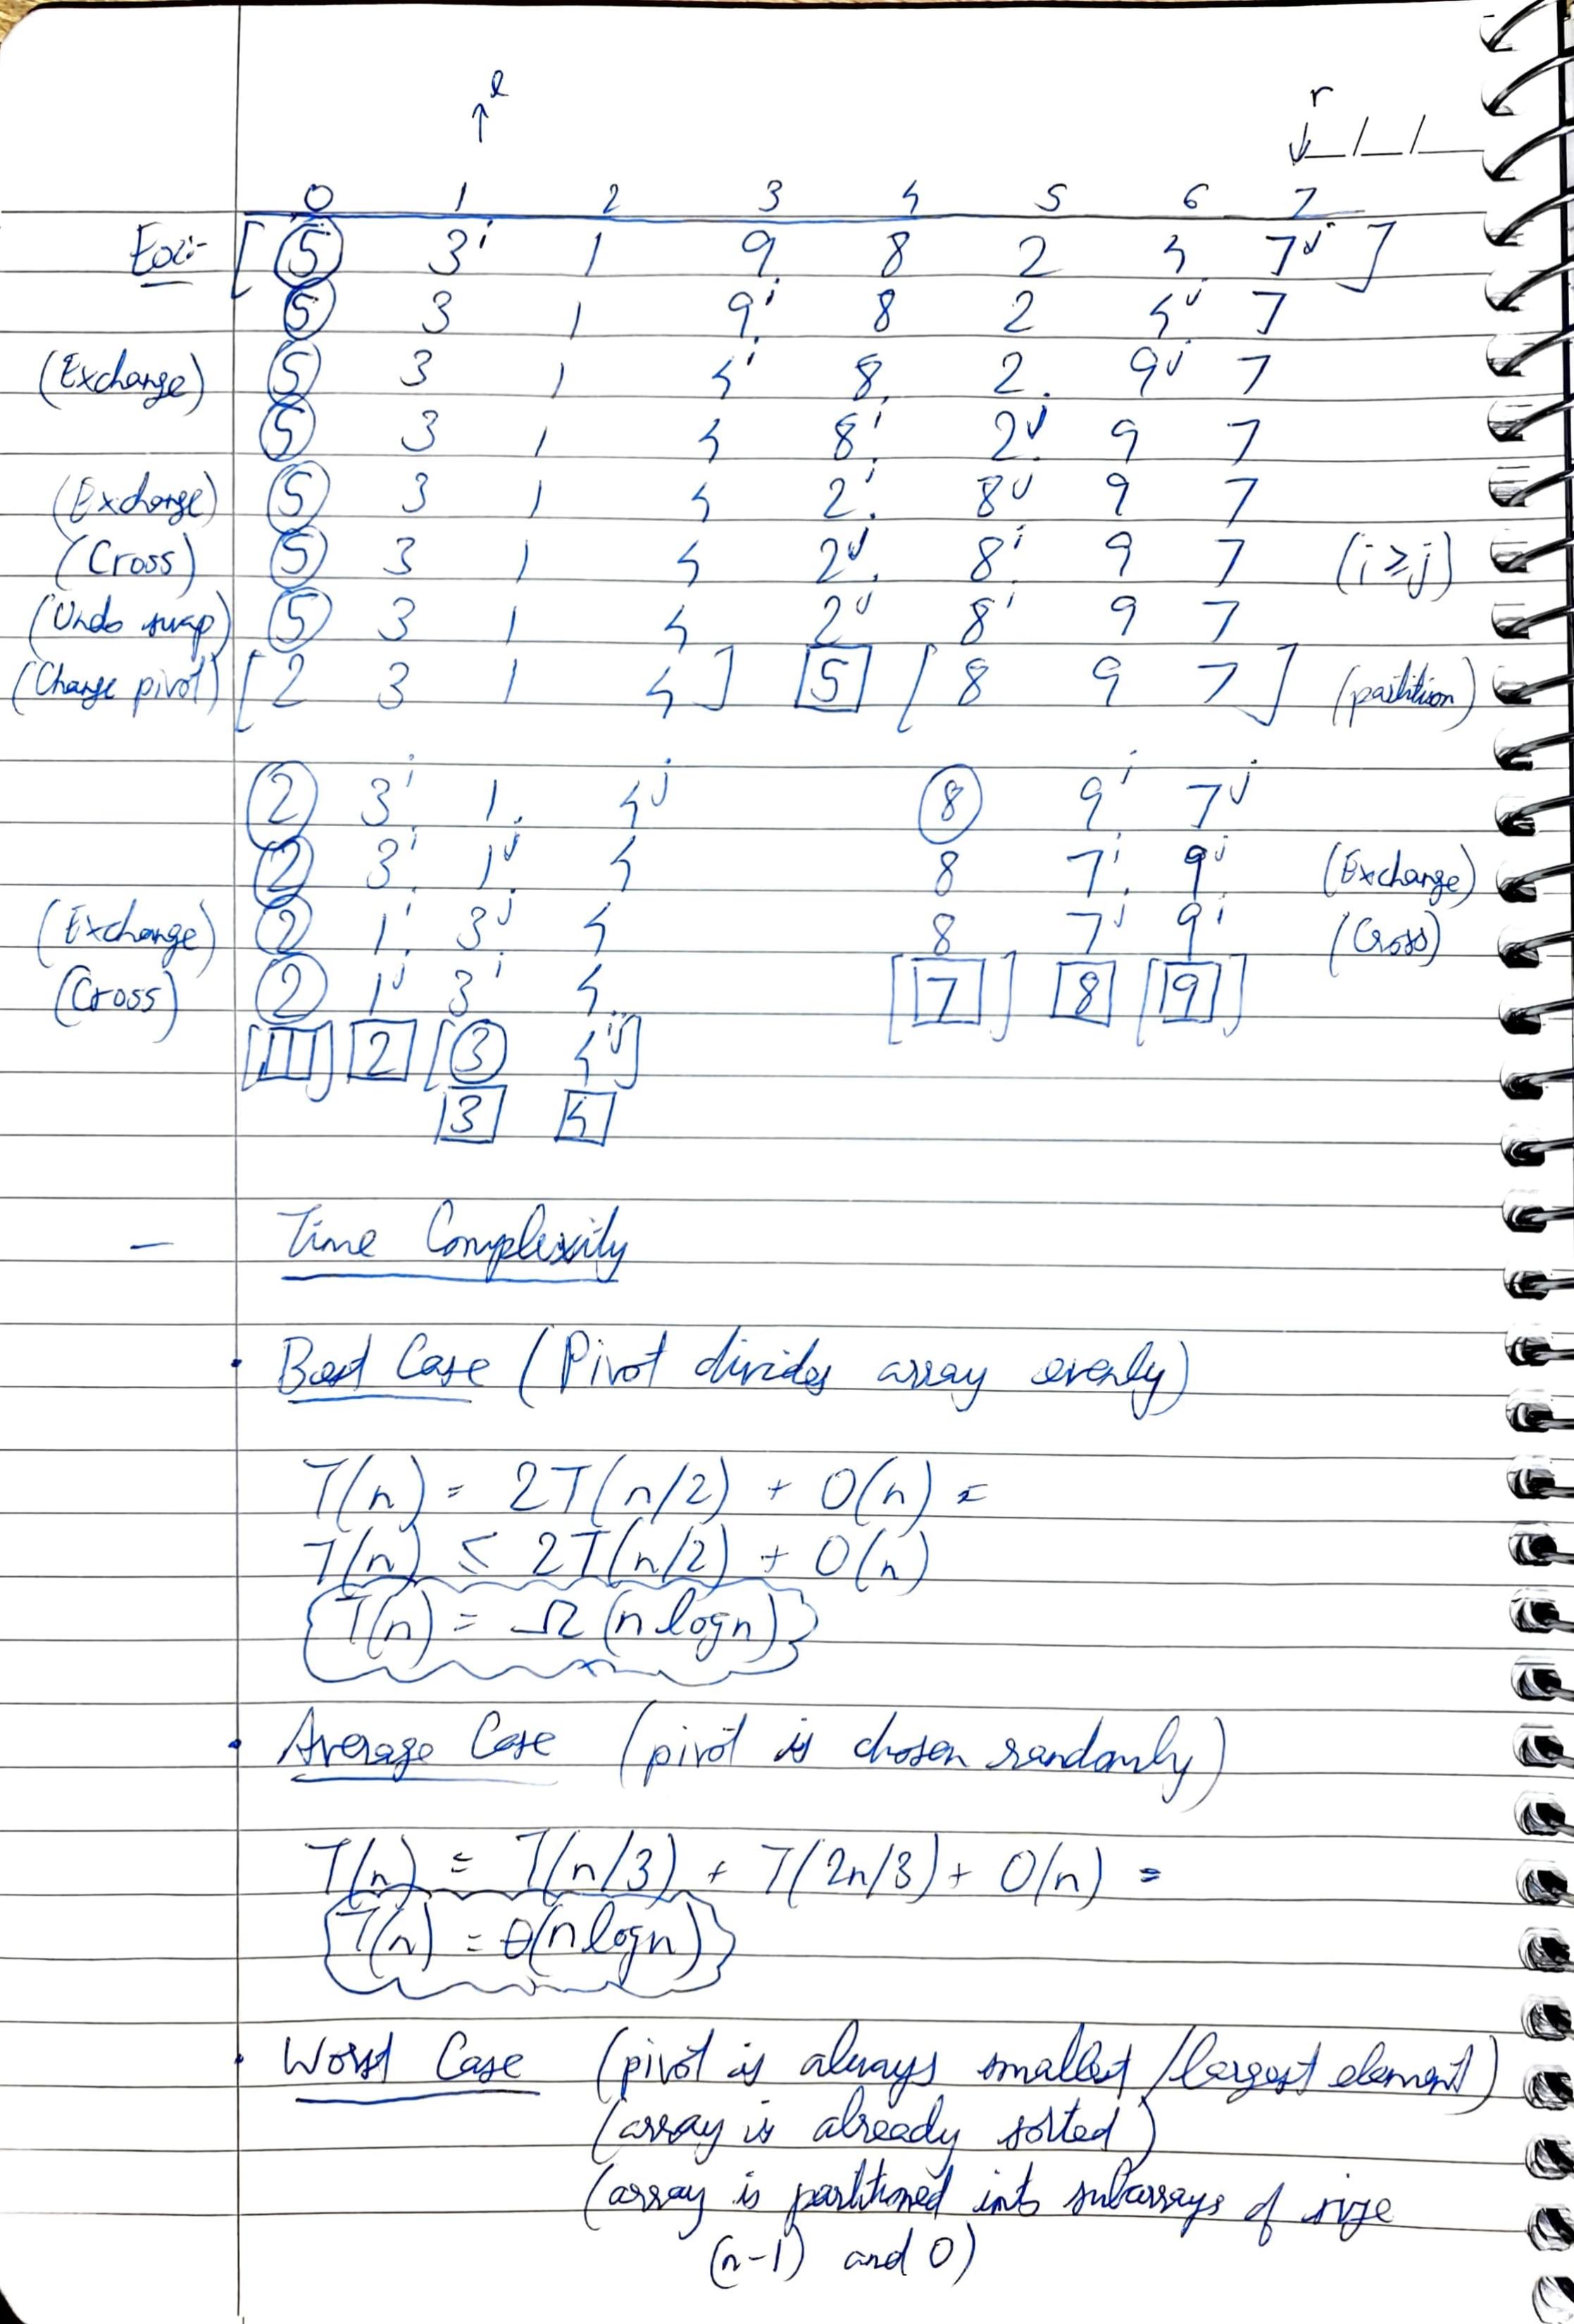 ↑l r
↓_/_/_
0 1 2 3 4 5 6 7
Ex:- [ 5 3i 1 9 8 2 4 7j ]
5 3 1 9i 8 2 4j 7
(Exchange) 5 3 1 4i 8 2 9j 7
5 3 1 4 8i 2j 9 7
(Exchange) 5 3 1 4 2i 8j 9 7
(Cross) 5 3 1 4 2j 8i 9 7 (i≥j)
(Undo swap) 5 3 1 4 2j 8i 9 7
(Change pivot) [ 2 3 1 4 ] 5 [ 8 9 7 ] (partition)
2 3i 1 4j 8 9i 7j
2 3i 1j 4 8 7i 9j (Exchange)
(Exchange) 2 1i 3j 4 8 7j 9i (Cross)
(Cross) 2 1j 3i 4 [7] 8 [9]
[1] 2 [3 4ij]
3 4
– Time Complexity
• Best Case (Pivot divides array evenly)
T(n) = 2T(n/2) + O(n) =
T(n) ≤ 2T(n/2) + O(n)
{T(n) = Ω (n logn)}
• Average Case (pivot is chosen randomly)
T(n) = T(n/3) + T(2n/3) + O(n) =
{T(n) = θ(n logn)}
• Worst Case (pivot is always smallest/largest element)
(array is already sorted)
(array is partitioned into subarrays of size
(n-1) and 0)